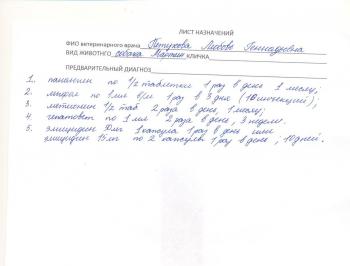 ЛИСТ НАЗНАЧЕНИЙ
ФИО ветеринарного врача Петухова Любовь Геннадьевна
ВИД ЖИВОТНГО собака Мартин КЛИЧКА
ПРЕДВАРИТЕЛЬНЫЙ ДИАГНОЗ
1. панангин по 1/2 таблетки 1 раз в день 1 месяц;
2. по 1 мл в/м 1 раз в 3 дня (10 инъекций);
3. метионин 1/2 таб 2 раза в день, 1 месяц;
4. гепатовет по 1 мл 2 раза в день, 3 недели.
5. эмицидин 50мг 1 капсула 1 раз в день или
эмицидин 15мг по 2 капсулы 1 раз в день, 10 дней.